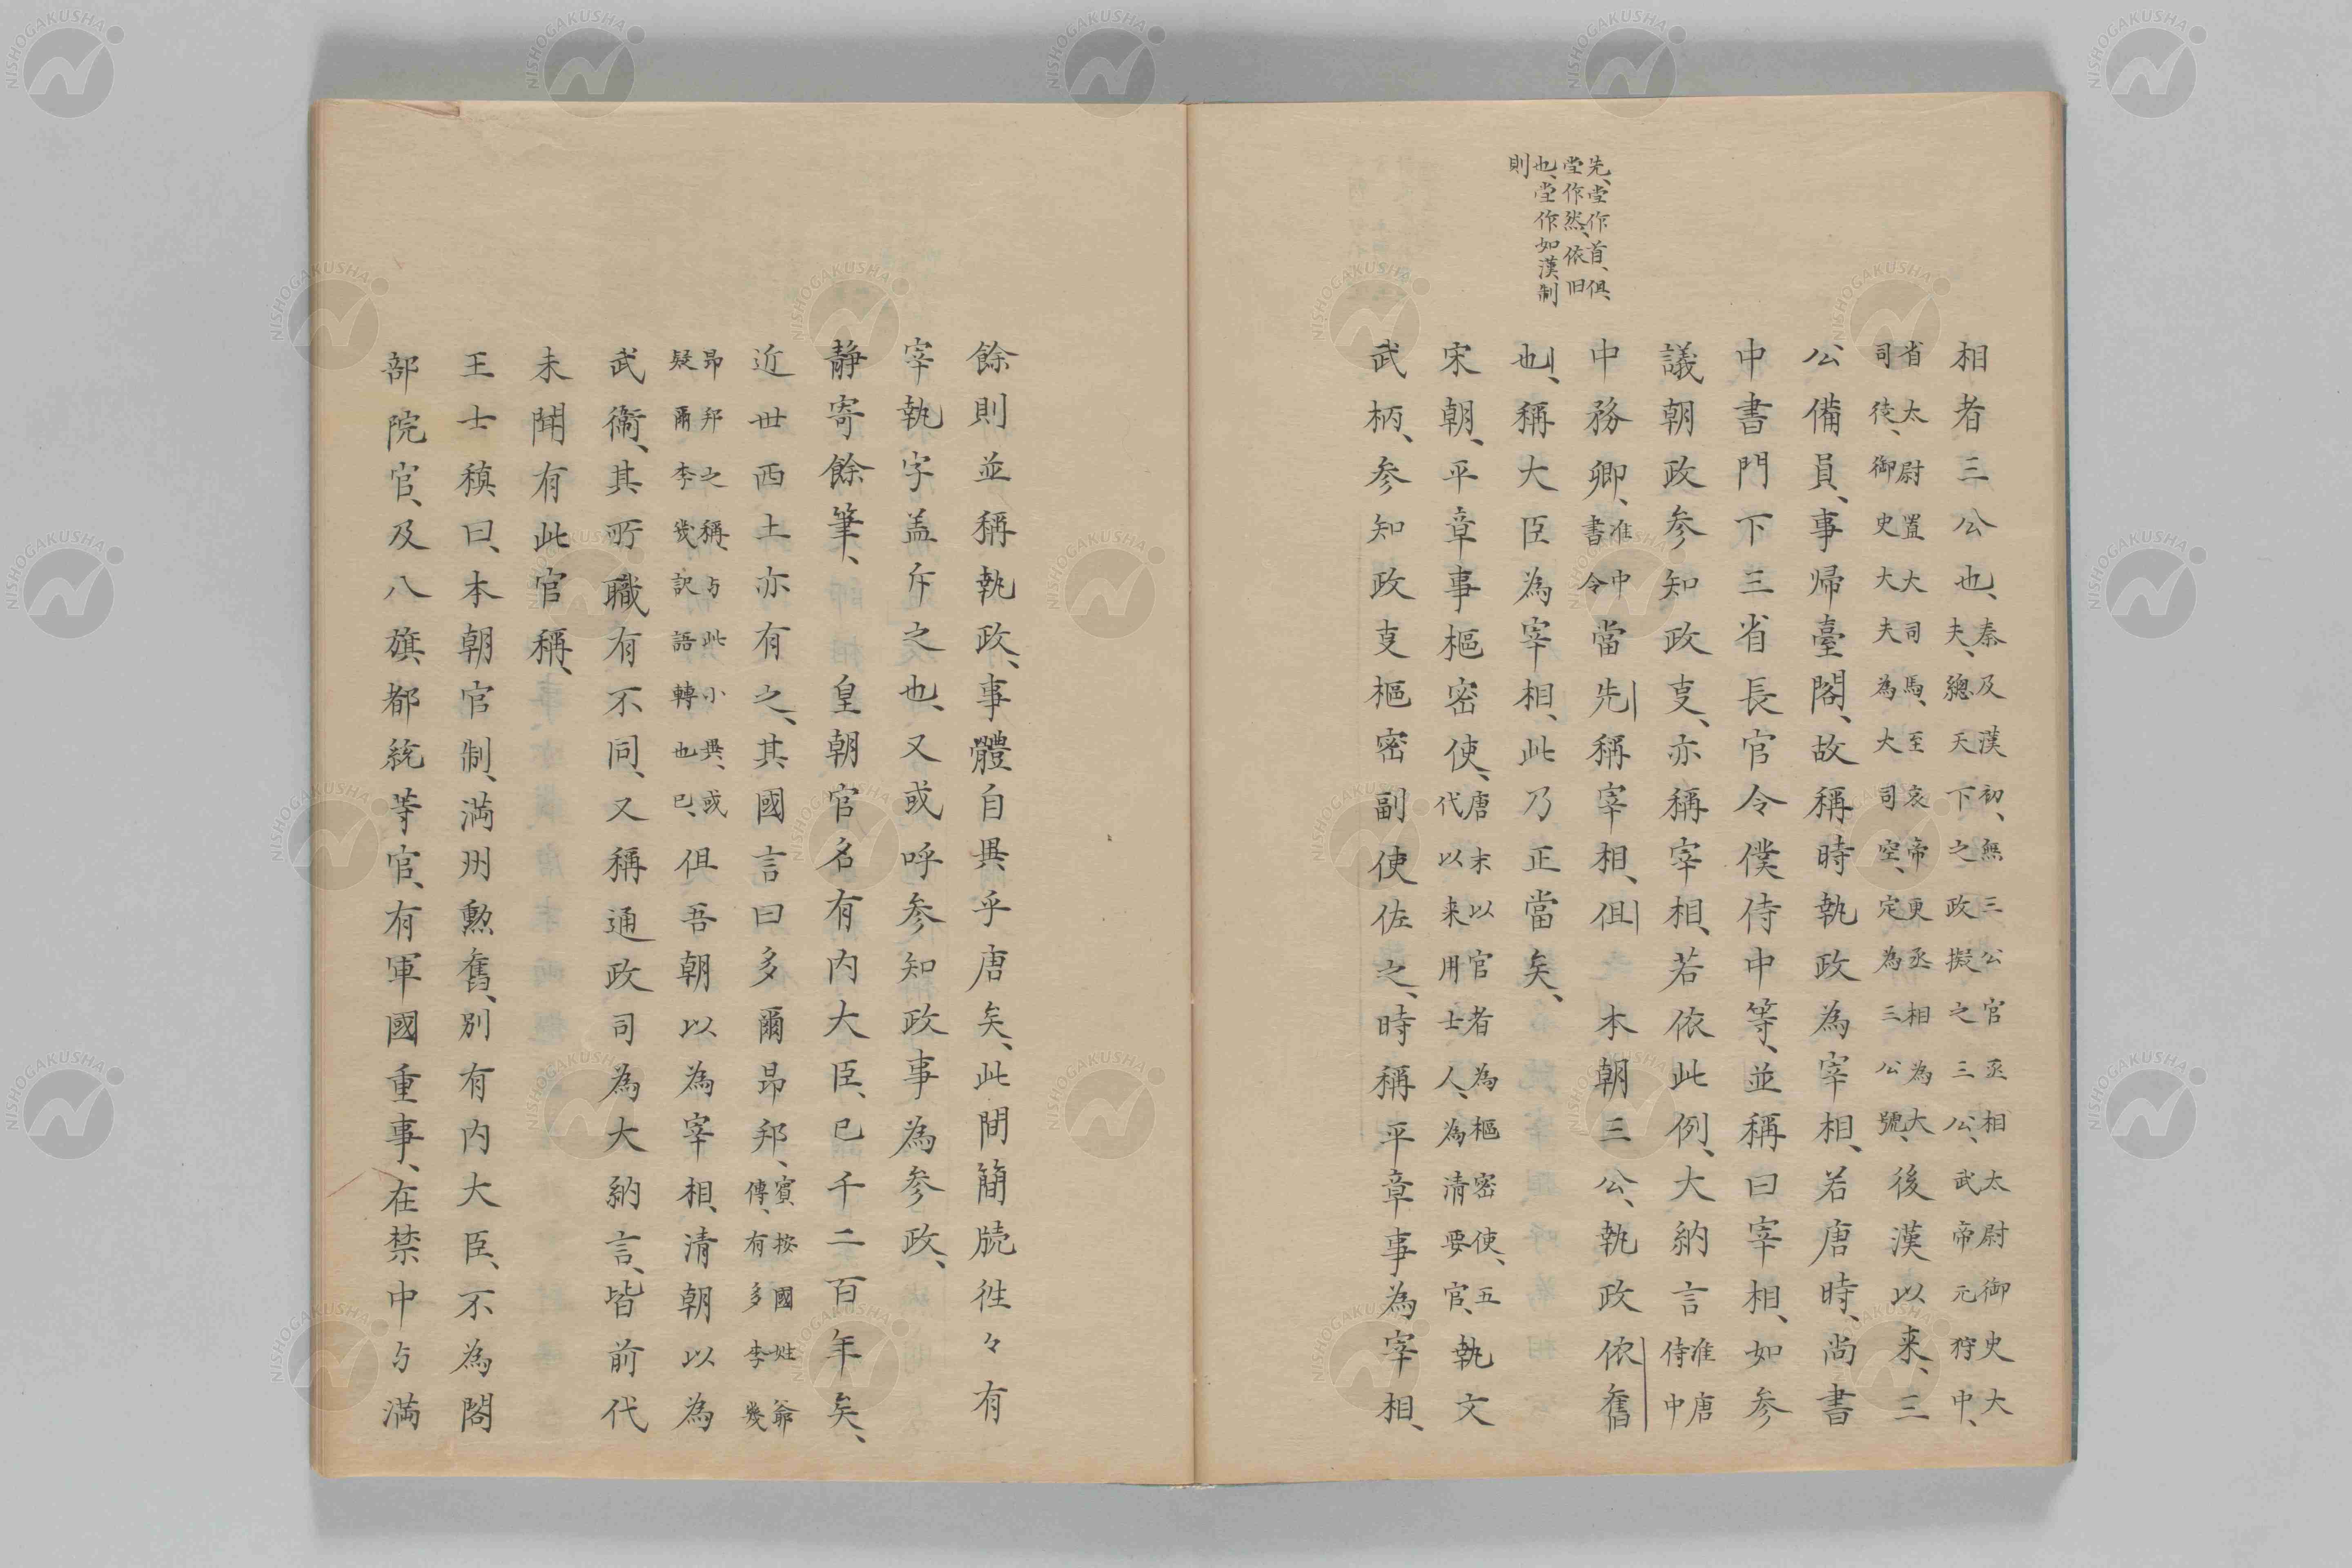 先、堂作首、俱、
堂作然、依旧
也、堂作如漢制
則
相者三公也、秦及漢初、無三公官丞相太尉御史大
夫、總天下之政擬之三公、武帝元狩中、
省太尉置大司馬、至哀帝、更丞相為大
司徒、御史大夫為大司空、定為三公號、後漢以来、三
公備員、事帰臺閣、故稱時執政為宰相、若唐時、尚書
中書門下三省長官令僕侍中等、並稱曰宰相、如参
議朝政参知政叓、亦稱宰相、若依此例、大納言准唐侍中
中務卿、准中書令當先稱宰相、但本朝三公、執政依舊
也、稱大臣為宰相、此乃正當矣、
宋朝、平章事樞密使、唐末以官者為樞密使、五代以来用士人、為清要官、執文
武柄、参知政叓樞密副使佐之、時稱平章事為宰相、
餘則並稱執政、事體自異乎唐矣、此間簡牘徃々有
宰執字盖斥之也、又或呼参知政事為参政、
静寄餘筆、皇朝官名有内大臣、已千二百年矣、
近世西土亦有之、其國言曰多爾昂邦、賓按國姓爺傳、有多李幾
昂邦之稱、与此小異、或疑爾李幾訳語轉也已、但吾朝以為宰相、清朝以為
武衞、其所職有不同、又稱通政司為大納言、皆前代
未聞有此官稱、
王士稹曰、本朝官制、満州勲舊、別有内大臣、不為閣
部院官、及八旗都統等官、有軍國重事、在禁中与満